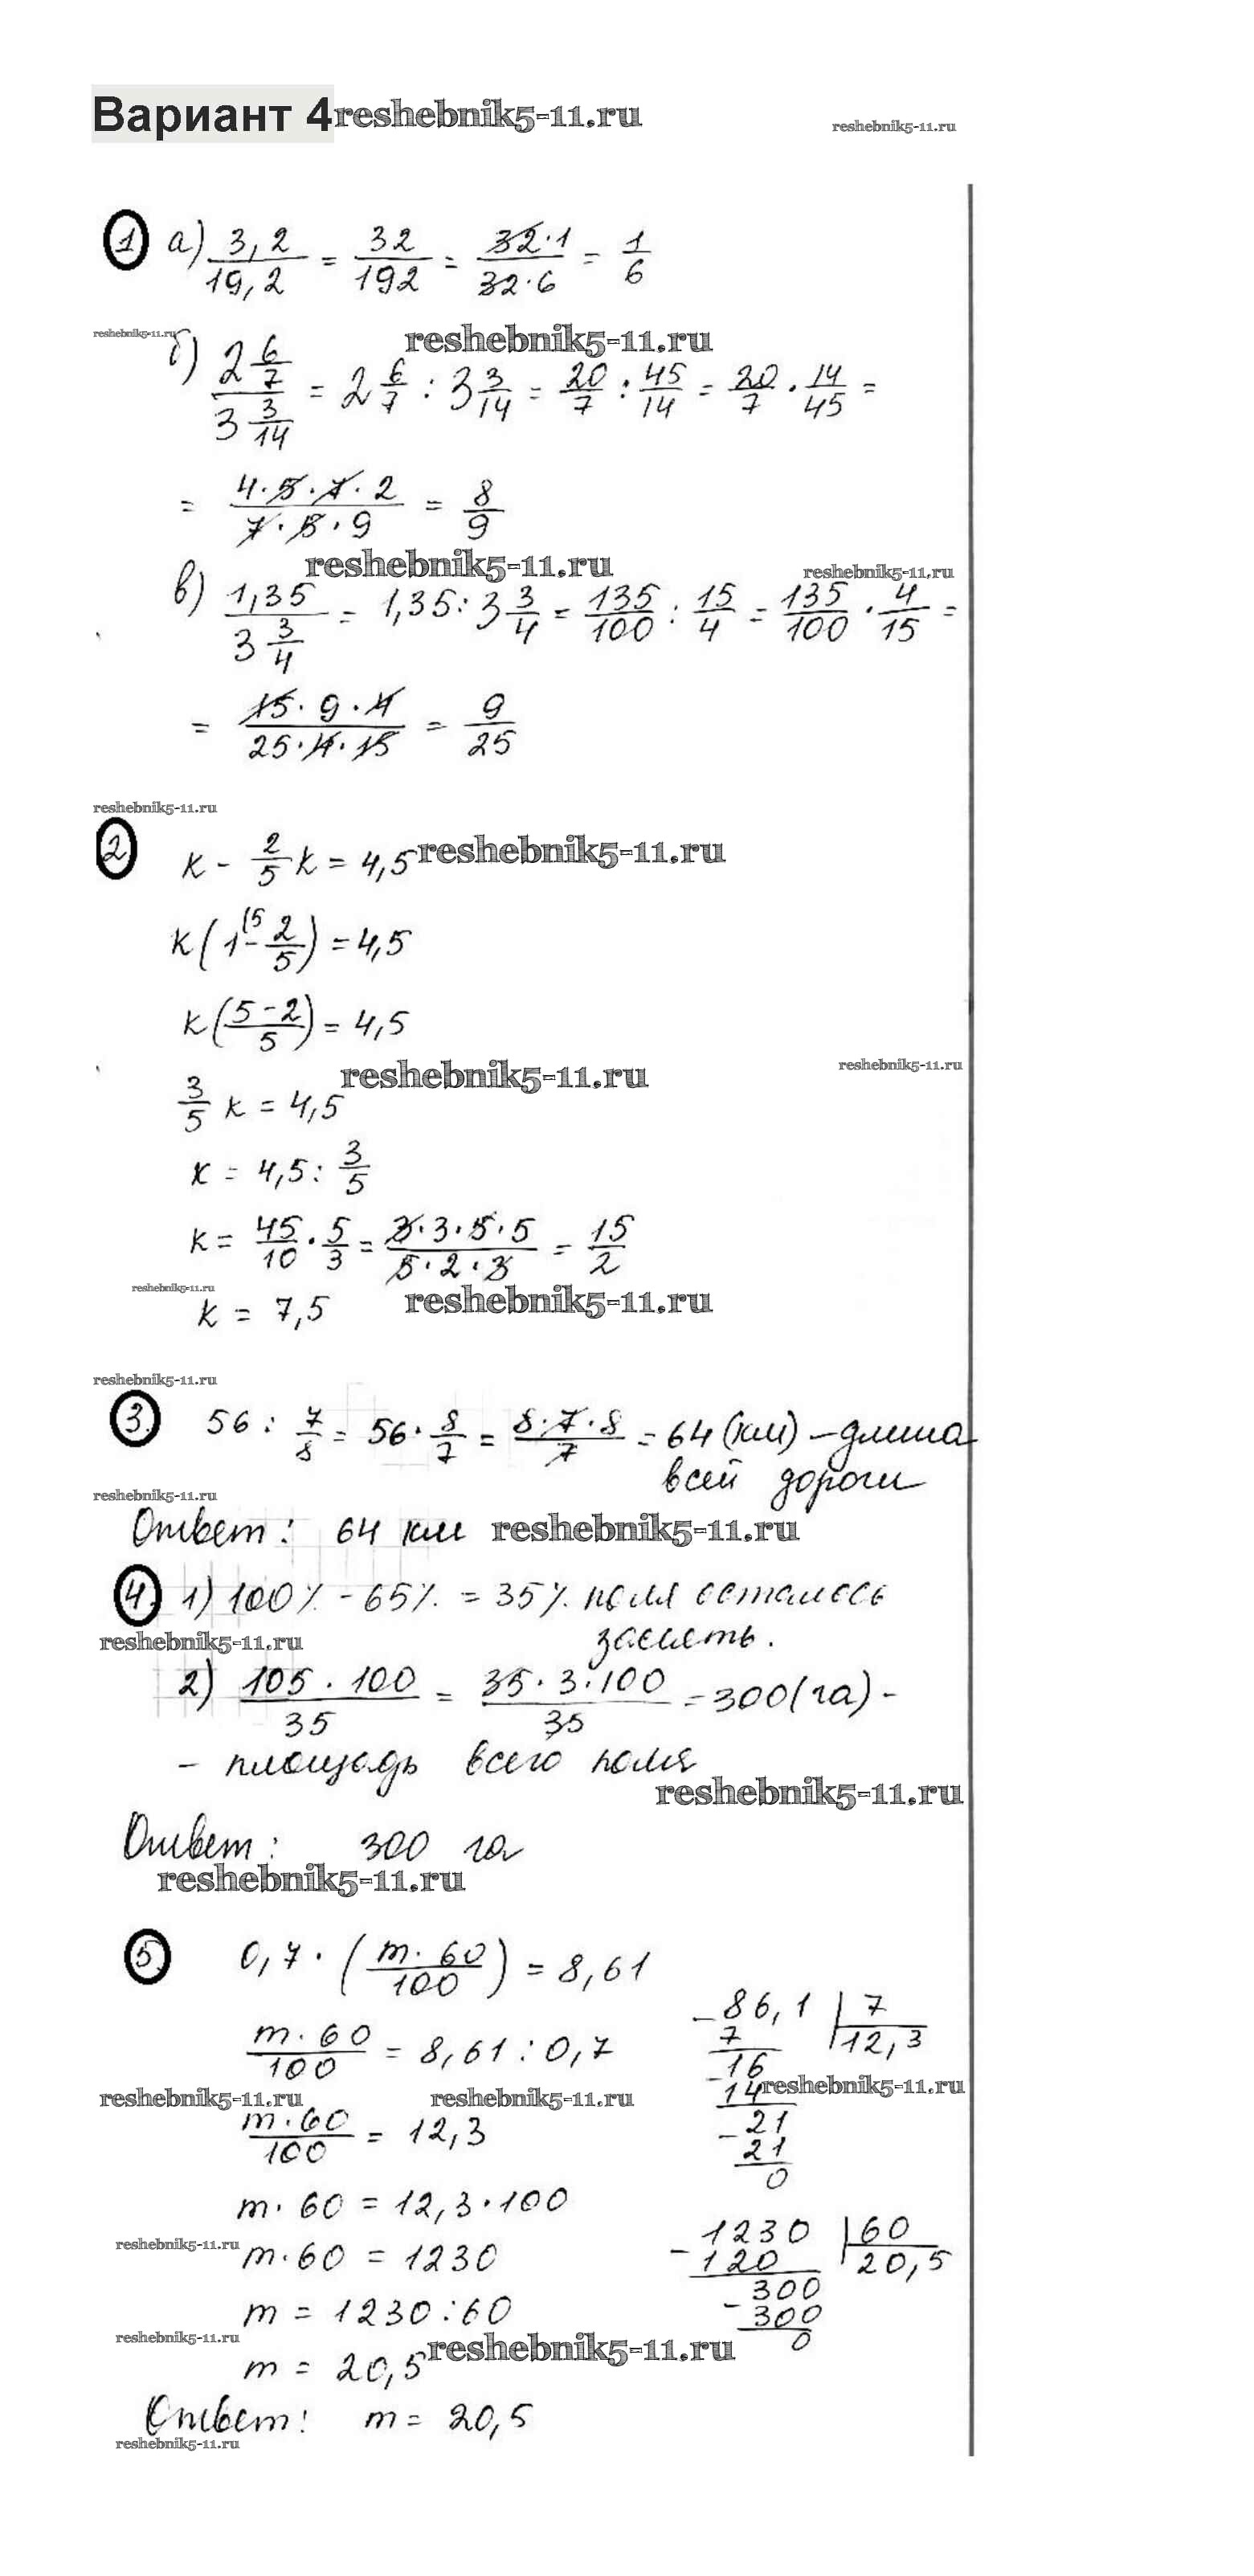 Вариант 4 reshebnik5-11.ru
reshebnik5-11.ru
1 а) 3,2/19,2 = 32/192 = 32·1/32·6 = 1/6
reshebnik5-11.ru
reshebnik5-11.ru
б) 2 6/7 / 3 3/14 = 2 6/7 : 3 3/14 = 20/7 : 45/14 = 20/7 · 14/45 =
= 4·5·7·2/7·5·9 = 8/9
reshebnik5-11.ru
reshebnik5-11.ru
в) 1,35 / 3 3/4 = 1,35 : 3 3/4 = 135/100 : 15/4 = 135/100 · 4/15 =
= 15·9·4/25·4·15 = 9/25
reshebnik5-11.ru
2 к - 2/5 к = 4,5 reshebnik5-11.ru
к (1 (5 - 2/5) = 4,5
к (5-2/5) = 4,5
reshebnik5-11.ru
reshebnik5-11.ru
3/5 к = 4,5
к = 4,5 : 3/5
к = 45/10 · 5/3 = 3·3·5·5/5·2·3 = 15/2
reshebnik5-11.ru
reshebnik5-11.ru
к = 7,5
reshebnik5-11.ru
3. 56 : 7/8 = 56 · 8/7 = 8·7·8/7 = 64 (км) – длина
всей дороги
reshebnik5-11.ru
Ответ: 64 км reshebnik5-11.ru
4. 1) 100% - 65% = 35% поля осталось
засеять.
reshebnik5-11.ru
2) 105·100/35 = 35·3·100/35 = 300 (га) -
- площадь всего поля
reshebnik5-11.ru
Ответ: 300 га
reshebnik5-11.ru
5. 0,7 · (m·60/100) = 8,61
m·60/100 = 8,61 : 0,7
reshebnik5-11.ru
reshebnik5-11.ru
m·60/100 = 12,3
m·60 = 12,3·100
reshebnik5-11.ru
m·60 = 1230
m = 1230 : 60
reshebnik5-11.ru
m = 20,5 reshebnik5-11.ru
Ответ: m = 20,5
reshebnik5-11.ru
- 86,1 | 7
7 12,3
- 16
14 reshebnik5-11.ru
- 21
21
0
- 1230 | 60
120 20,5
- 300
300
0